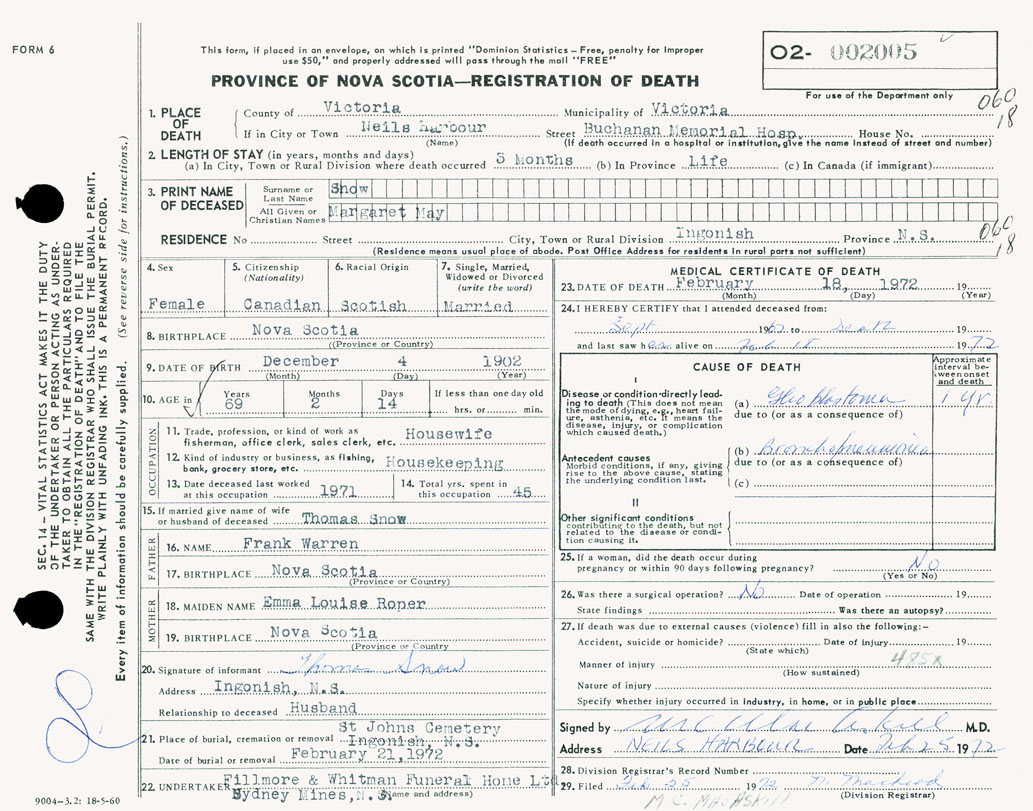 FORM 6
This form, if placed in an envelope, on which is printed "Dominion Statistics – Free, penalty for Improper
use $50," and properly addressed will pass through the mail "FREE"
PROVINCE OF NOVA SCOTIA—REGISTRATION OF DEATH
02- 002005
For use of the Department only
060
18
1. PLACE OF DEATH
County of Victoria Municipality of Victoria
If in City or Town Neils Harbour Street Buchanan Memorial Hosp. House No.
(Name) (If death occurred in a hospital or institution, give the name instead of street and number)
2. LENGTH OF STAY (in years, months and days)
(a) In City, Town or Rural Division where death occurred 3 Months (b) In Province Life (c) In Canada (if immigrant)
3. PRINT NAME OF DECEASED
Surname or Last Name Snow
All Given or Christian Names Margaret May
060
18
RESIDENCE No Street City, Town or Rural Division Ingonish Province N.S.
(Residence means usual place of abode. Post Office Address for residents in rural parts not sufficient)
4. Sex
Female
5. Citizenship (Nationality)
Canadian
6. Racial Origin
Scotish
7. Single, Married, Widowed or Divorced (write the word)
Married
8. BIRTHPLACE Nova Scotia
(Province or Country)
9. DATE OF BIRTH December 4 1902
(Month) (Day) (Year)
10. AGE in Years 69 Months 2 Days 14 If less than one day old hrs. or min.
OCCUPATION
11. Trade, profession, or kind of work as
fisherman, office clerk, sales clerk, etc. Housewife
12. Kind of industry or business, as fishing,
bank, grocery store, etc. Housekeeping
13. Date deceased last worked at this occupation 1971
14. Total yrs. spent in this occupation 45
15. If married give name of wife
or husband of deceased Thomas Snow
FATHER
16. NAME Frank Warren
17. BIRTHPLACE Nova Scotia
(Province or Country)
MOTHER
18. MAIDEN NAME Emma Louise Roper
19. BIRTHPLACE Nova Scotia
(Province or Country
20. Signature of informant Thomas Snow
Address Ingonish, N.S.
Relationship to deceased Husband
21. Place of burial, cremation or removal St Johns Cemetery
Ingonish, N.S.
Date of burial or removal February 21,1972
22. UNDERTAKER Fillmore & Whitman Funeral Home Ltd.
Sydney Mines, N.S.
(Name and address)
MEDICAL CERTIFICATE OF DEATH
23. DATE OF DEATH February 18, 1972 19
(Month) (Day) (Year)
24. I HEREBY CERTIFY that I attended deceased from:
Sept 19 to Death 19
and last saw her alive on Feb 18 1972
CAUSE OF DEATH
Approximate interval between onset and death
I
Disease or condition directly leading to death (This does not mean the mode of dying, e.g., heart failure, asthenia, etc. It means the disease, injury, or complication which caused death.)
(a) Glioblastoma 1 yr
due to (or as a consequence of)
Antecedent causes
Morbid conditions, if any, giving rise to the above cause, stating the underlying condition last.
(b) Bronchopneumonia
due to (or as a consequence of)
(c)
II
Other significant conditions
contributing to the death, but not related to the disease or condition causing it.
25. If a woman, did the death occur during
pregnancy or within 90 days following pregnancy? No
(Yes or No)
26. Was there a surgical operation? No Date of operation 19
State findings Was there an autopsy?
27. If death was due to external causes (violence) fill in also the following:–
Accident, suicide or homicide? Date of injury 19
(State which)
Manner of injury 485X
(How sustained)
Nature of injury
Specify whether injury occurred in industry, in home, or in public place
Signed by M.D.
Address NEILS HARBOUR Date Feb 25 1972
28. Division Registrar's Record Number
29. Filed Feb 25 1972
(Division Registrar)
M. C. MacASKILL
SEC. 14 – VITAL STATISTICS ACT MAKES IT THE DUTY
OF THE UNDERTAKER OR PERSON ACTING AS UNDER-
TAKER TO OBTAIN ALL THE PARTICULARS REQUIRED
IN THE "REGISTRATION OF DEATH" AND TO FILE THE
SAME WITH THE DIVISION REGISTRAR WHO SHALL ISSUE THE BURIAL PERMIT.
WRITE PLAINLY WITH UNFADING INK. THIS IS A PERMANENT RECORD.
Every item of information should be carefully supplied. (See reverse side for instructions.)
9004-3.2: 18-5-60